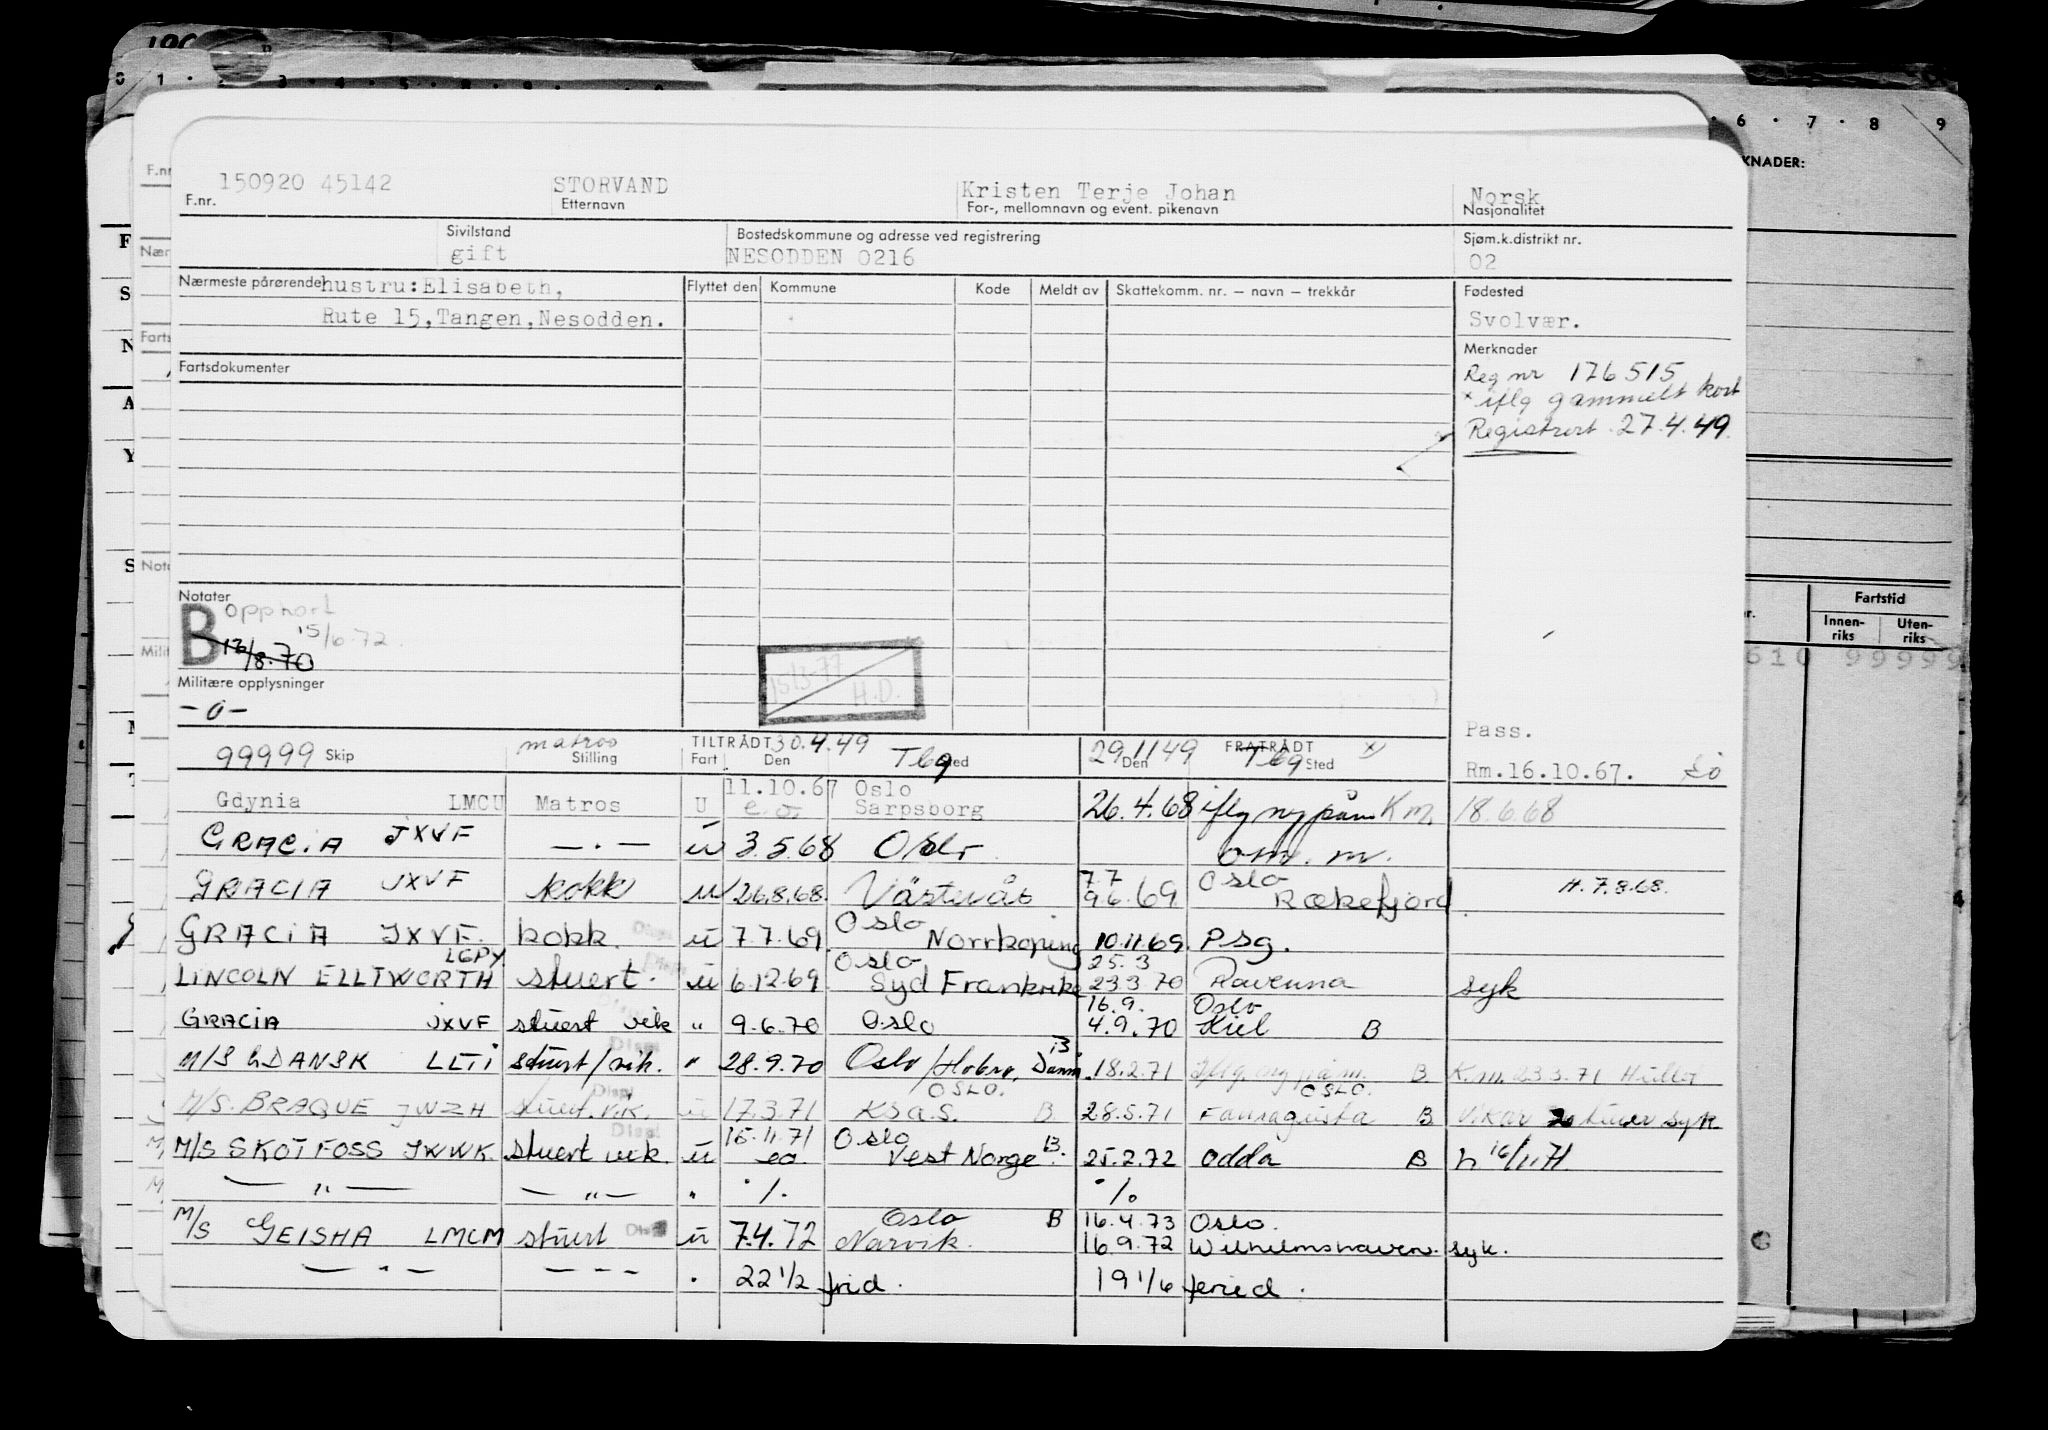 150920 45142 STORVAND Kristen Terje Johan Norsk
F.nr. Etternavn For-, mellomnavn og event. pikenavn Nasjonalitet
Sivilstand Bostedskommune og adresse ved registrering Sjøm.k.distrikt nr.
gift NESODDEN 0216 02
Nærmeste pårørende hustru:Elisabeth, Flyttet den Kommune Kode Meldt av Skattekomm. nr. — navn — trekkår Fødested
Rute 15,Tangen,Nesodden. Svolvær.
Merknader
Fartsdokumenter
Reg nr 176515
* iflg gammelt kort
Registrert 27.4.49.
Notater
B opphørt
15/6.72.
12/8.70
15/3-77
H.D.
Militære opplysninger
-0-
Pass.
99999 Skip matros Stilling TILTRÅDT 30.4.49 Fart Den Tbg Sted 29/11 49 Den FRATRÅDT Tbg Sted x)
Rm.16.10.67.
11.10.67 Oslo
Gdynia LMCU Matros U e.o. Sarpsborg 26.4.68 iflg ny påm Km. 18.6.68
GRACIA JXVF — . — u 3.5.68 Oslo om. m.
GRACIA JXVF kokk u 26.8.68. Västervåt 7.7 9.6.69 Oslo Rækefjord H. 7.8.68.
GRACIA JXVF. kokk. Displ u 7.7.69. Oslo Norrkøping 10.11.69. Psg.
LINCOLN ELLTWORTH LGPY stuert. Displ u 6.12.69 Oslo Syd Frankrike 25.3 23.3 70 Ravenna syk
GRACIA JXVF stuert vik " 9.6.70 Oslo 16.9. 4.9.70 Oslo Kiel B
M/S GDANSK LLTI stuert/vik. Displ " 28.9.70 Oslo/Hobro, Danm. B. 18.2.71 Iflg. ny påm. B. K.m. 23.3.71
M/S. BRAQUE JWZH stuert. vik. Displ u 17.3.71 OSLO. KSA.S. B 28.5.71 OSLO. Famagusta B Vikar stuert syk
M/S SKOTFOSS JWWK stuert vik. Displ u 15.11.71 eo. Oslo Vest Norge B. 25.2.72 Odda B h 16/11.71
— " — — " — " ./. ./.
M/S GEISHA LMCM stuert Displ u 7.4.72 Oslo B Narvik. 16.4.73 Oslo.
16.9.72 Wilhelmshaven. syk.
— " — — " — " 22 1/2 frid. 19 1/6 feried.
KNADER:
6 · 7 · 8 9
Fartstid
Innen-
riks
Uten-
riks
610 99999